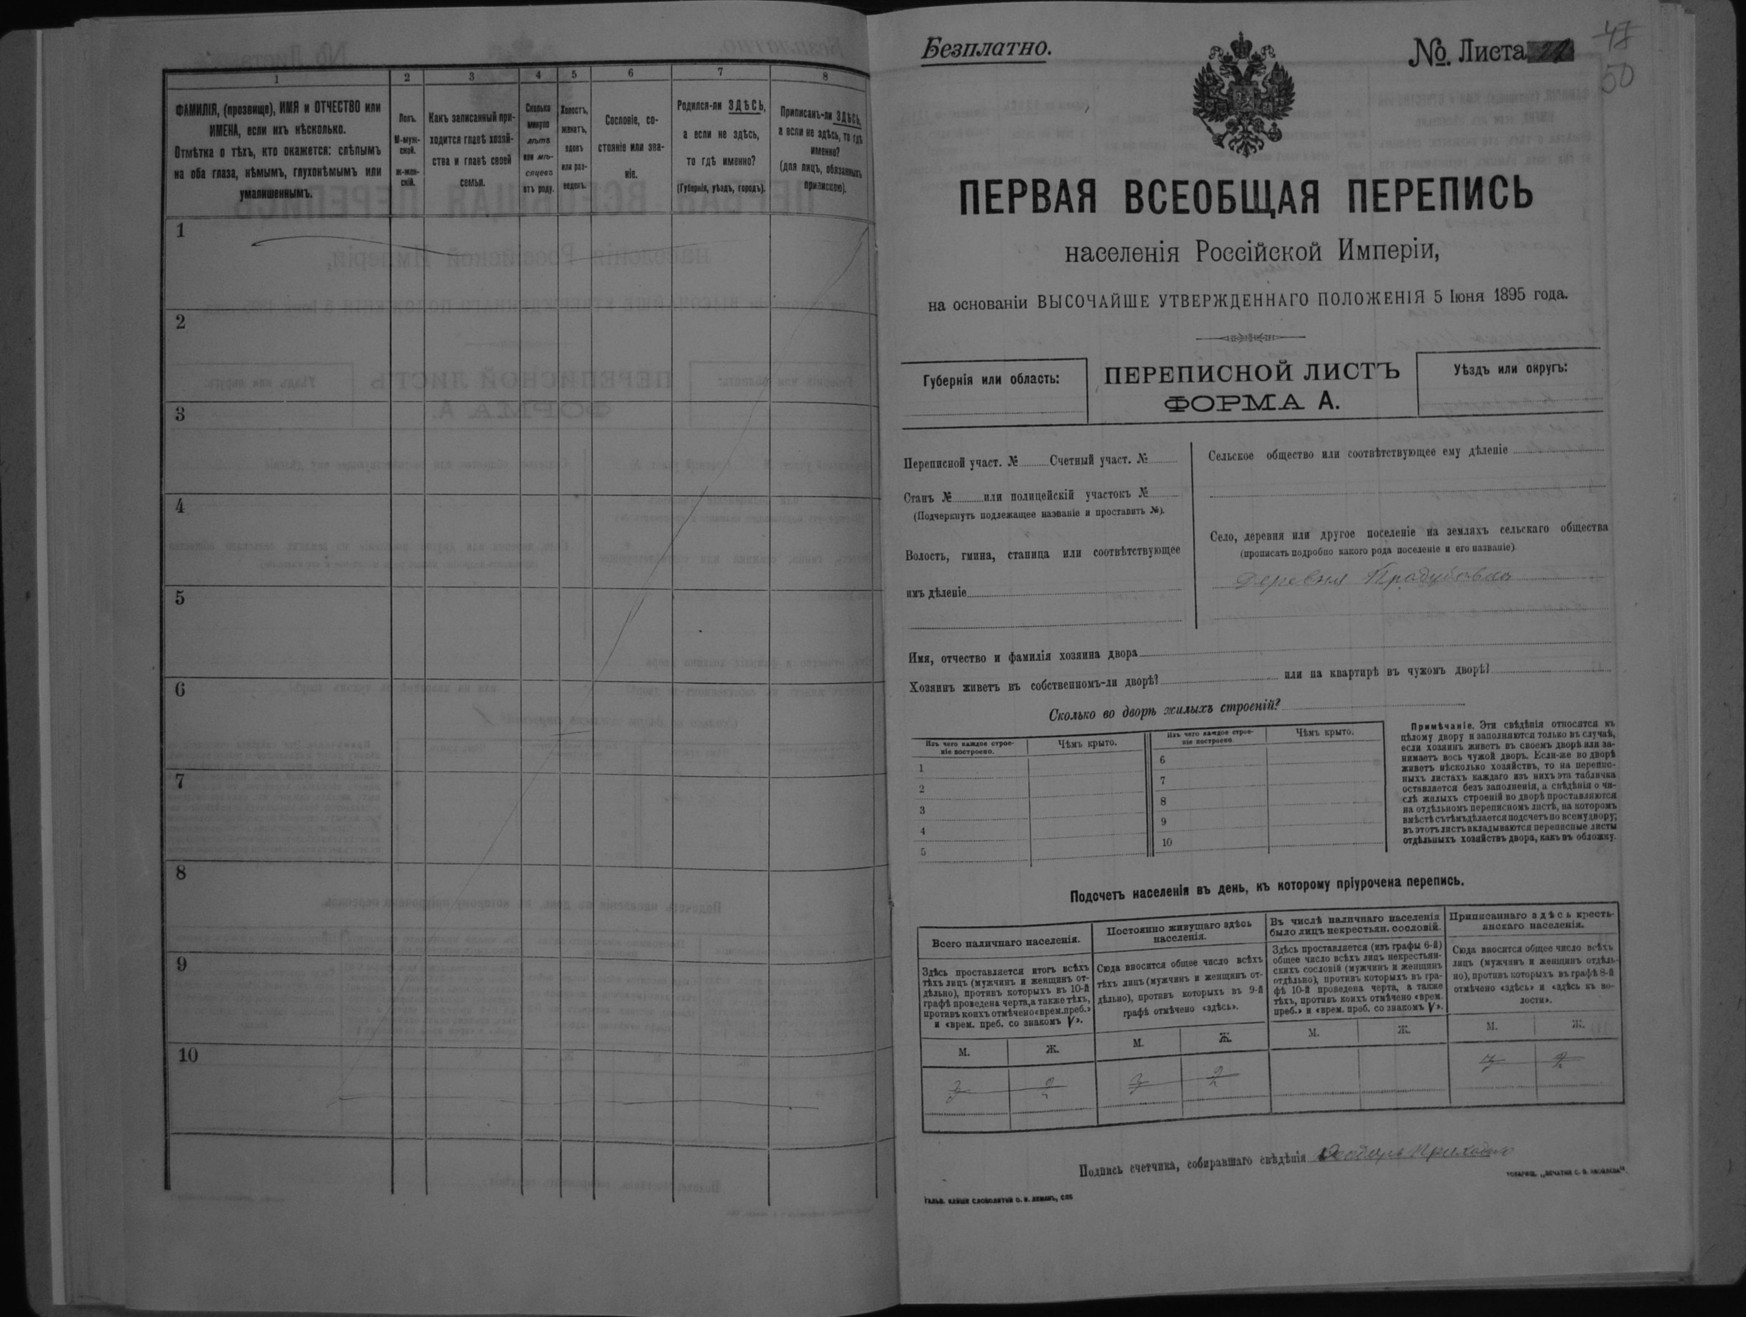 1 2 3 4 5 6 7 8
ФАМИЛІЯ, (прозвище), ИМЯ и ОТЧЕСТВО или
ИМЕНА, если ихъ нѣсколько.
Отмѣтка о тѣхъ, кто окажется: слѣпымъ
на оба глаза, нѣмымъ, глухонѣмымъ или
умалишеннымъ.
Полъ.
М-муж-
ской.
ж-жен-
скій.
Какъ записанный при-
ходится главѣ хозяй-
ства и главѣ своей
семьи.
Сколько
минуло
лѣтъ
или мѣ-
сяцевъ
отъ роду.
Холостъ,
женатъ,
вдовъ
или раз-
веденъ.
Сословіе, со-
стояніе или зва-
ніе.
Родился-ли ЗДѢСЬ,
а если не здѣсь,
то гдѣ именно?
(Губернія, уѣздъ, городъ).
Приписанъ-ли ЗДѢСЬ,
а если не здѣсь, то гдѣ
именно?
(для лицъ, обязанныхъ
припискою).
1
2
3
4
5
6
7
8
9
10
Безплатно.
№. Листа
50
ПЕРВАЯ ВСЕОБЩАЯ ПЕРЕПИСЬ
населенія Россійской Имперіи,
на основаніи ВЫСОЧАЙШЕ УТВЕРЖДЕННАГО ПОЛОЖЕНІЯ 5 Іюня 1895 года.
Губернія или область:
ПЕРЕПИСНОЙ ЛИСТЪ
ФОРМА А.
Уѣздъ или округъ:
Переписной участ. № Счетный участ. №
Станъ № или полицейскій участокъ №
(Подчеркнуть подлежащее названіе и проставить №).
Волость, гмина, станица или соотвѣтствующее
имъ дѣленіе
Сельское общество или соотвѣтствующее ему дѣленіе
Село, деревня или другое поселеніе на земляхъ сельскаго общества
(прописать подробно какого рода поселеніе и его названіе)
деревня
Имя, отчество и фамилія хозяина двора
Хозяинъ живетъ въ собственномъ-ли дворѣ? или на квартирѣ въ чужомъ дворѣ?
Сколько во дворѣ жилыхъ строеній?
Изъ чего каждое строе-
ніе построено.
Чѣмъ крыто.
1
2
3
4
5
Изъ чего каждое строе-
ніе построено.
Чѣмъ крыто.
6
7
8
9
10
Примѣчаніе. Эти свѣдѣнія относятся къ
цѣлому двору и заполняются только въ случаѣ,
если хозяинъ живетъ въ своемъ дворѣ или за-
нимаетъ весь чужой дворъ. Если-же во дворѣ
живетъ нѣсколько хозяйствъ, то на перепис-
ныхъ листахъ каждаго изъ нихъ эта табличка
оставляется безъ заполненія, а свѣдѣнія о чи-
слѣ жилыхъ строеній во дворѣ проставляются
на отдѣльномъ переписномъ листѣ, на которомъ
вмѣстѣ съ тѣмъ дѣлается подсчетъ по всему двору;
въ этотъ листъ вкладываются переписные листы
отдѣльныхъ хозяйствъ двора, какъ въ обложку.
Подсчетъ населенія въ день, къ которому пріурочена перепись.
Всего наличнаго населенія.
Здѣсь проставляется итогъ всѣхъ
тѣхъ лицъ (мужчинъ и женщинъ от-
дѣльно), противъ которыхъ въ 10-й
графѣ проведена черта, а также тѣхъ,
противъ коихъ отмѣчено «врем. преб.»
и «врем. преб. со знакомъ V».
М. Ж.
Постоянно живущаго здѣсь
населенія.
Сюда вносится общее число всѣхъ
тѣхъ лицъ (мужчинъ и женщинъ от-
дѣльно), противъ которыхъ въ 9-й
графѣ отмѣчено «здѣсь».
М. Ж.
Въ числѣ наличнаго населенія
было лицъ некрестьян. сословій.
Здѣсь проставляется (изъ графы 6-й)
общее число всѣхъ лицъ некрестьян-
скихъ сословій (мужчинъ и женщинъ
отдѣльно), противъ которыхъ въ гра-
фѣ 10-й проведена черта, а также
тѣхъ, противъ коихъ отмѣчено «врем.
преб.» и «врем. преб. со знакомъ V».
М. Ж.
Приписаннаго здѣсь кресть-
янскаго населенія.
Сюда вносится общее число всѣхъ
лицъ (мужчинъ и женщинъ отдѣль-
но), противъ которыхъ въ графѣ 8-й
отмѣчено «здѣсь» и «здѣсь въ во-
лости».
М. Ж.
Подпись счетчика, собиравшаго свѣдѣнія